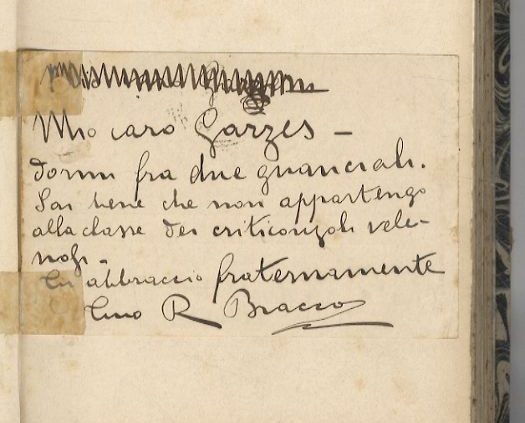 Mio caro Garzes -
Dormi fra due guanciali.
Sai bene che non appartengo
alla classe dei criticonzoli vele-
nosi -
Ti abbraccio fraternamente
tuo R Bracco